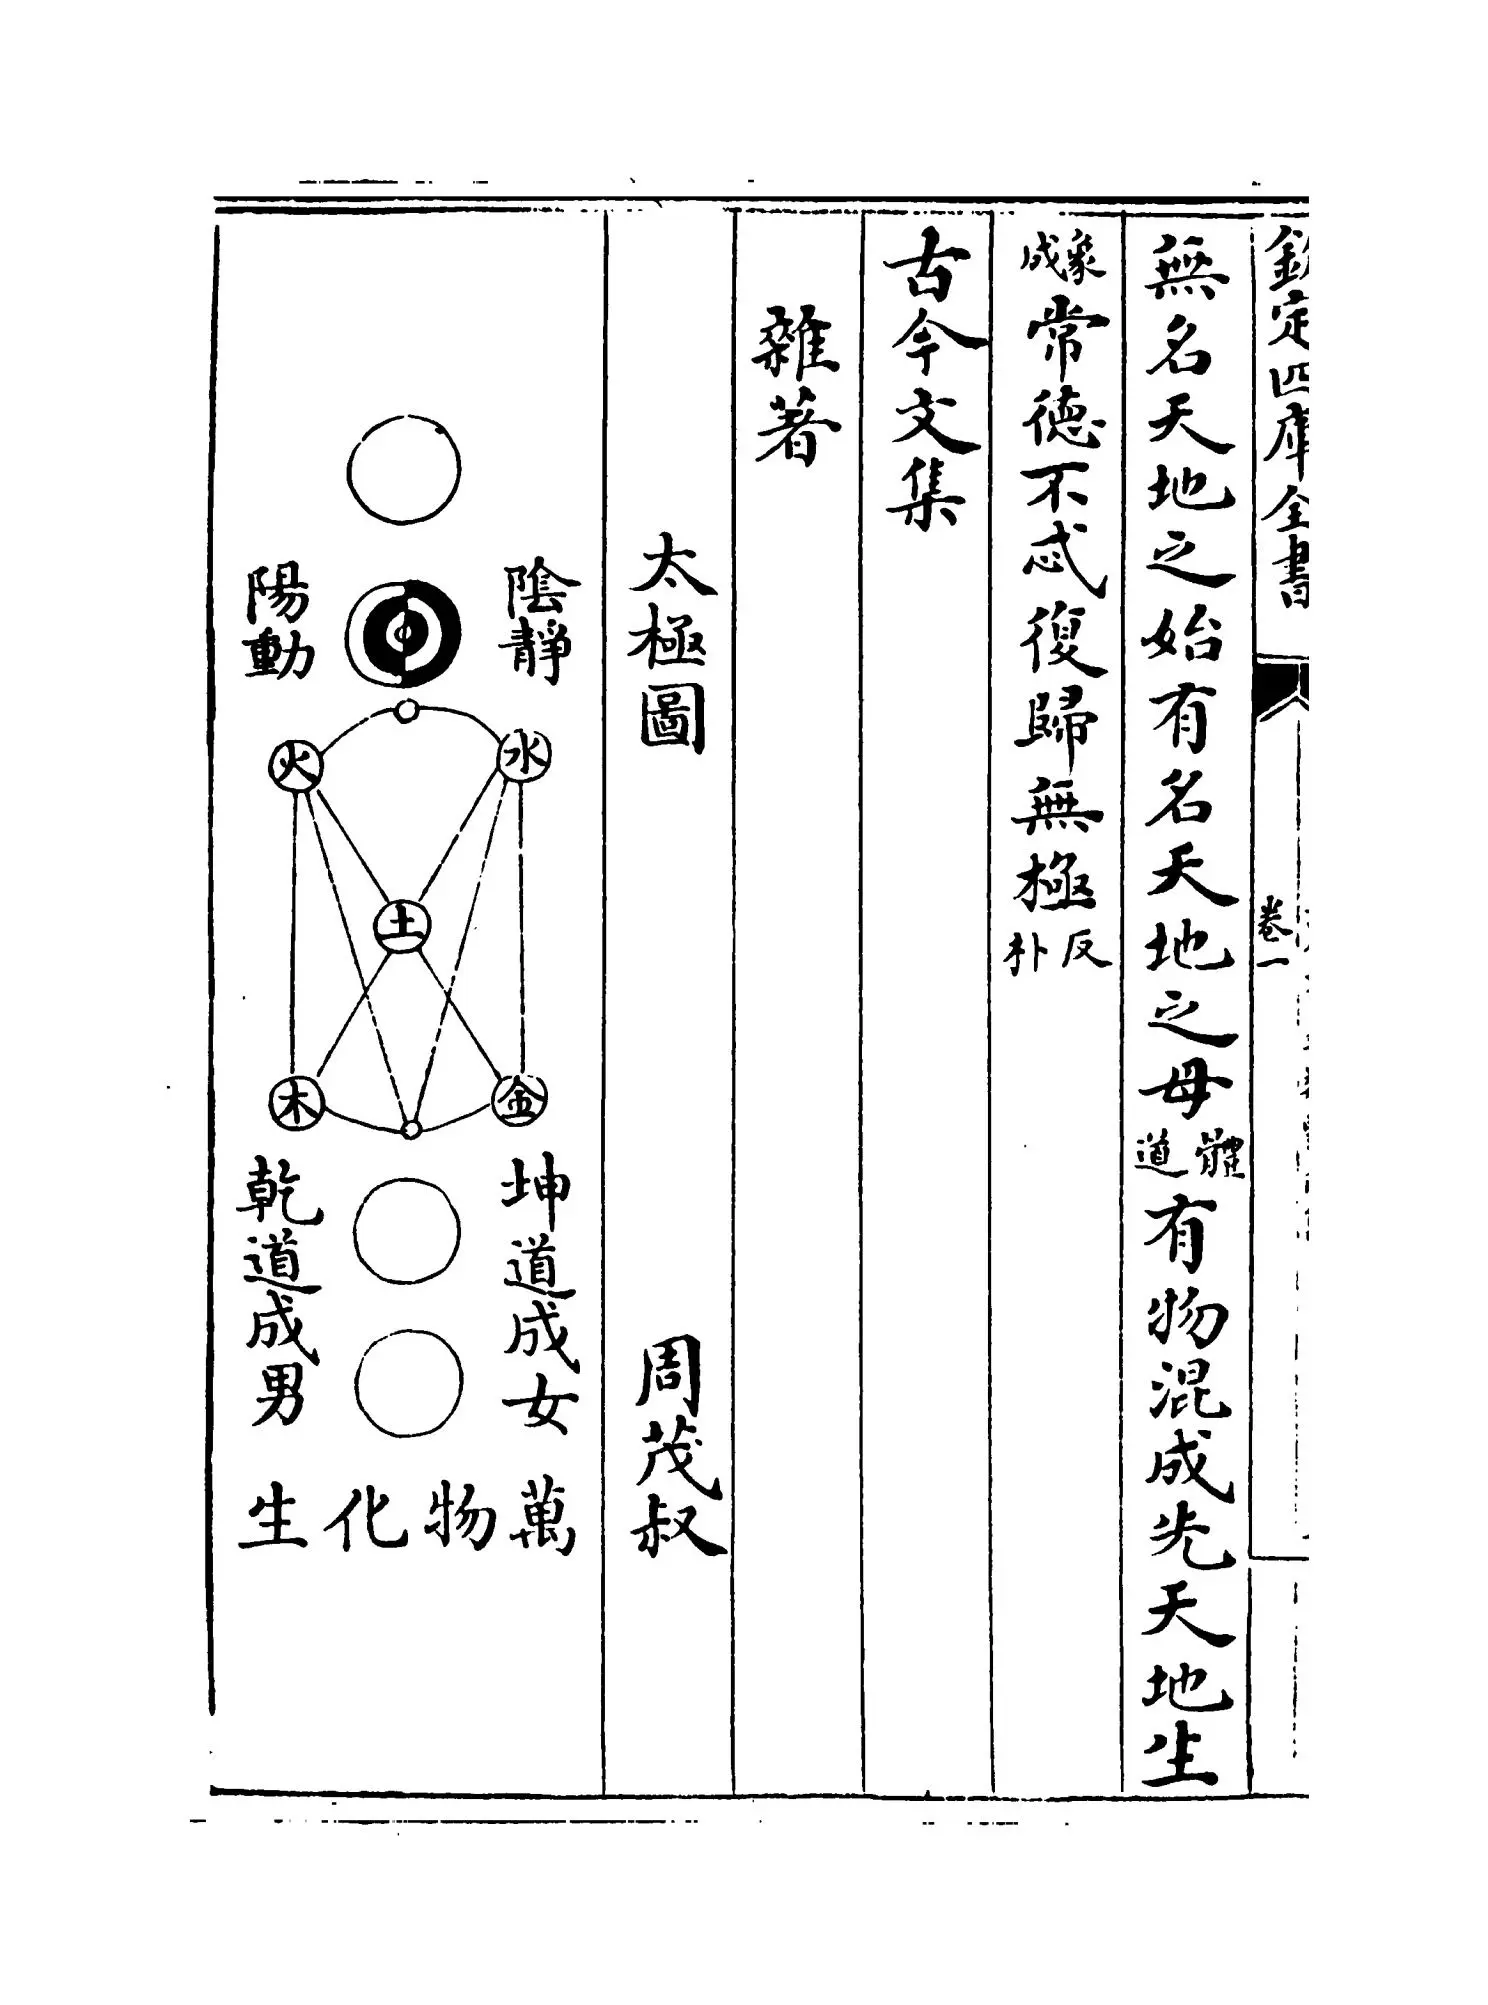 欽定四庫全書
卷一
無名天地之始有名天地之母體道有物混成先天地生
象成常德不忒復歸無極反朴
古今文集
雜著
太極圖 周茂叔
陰靜
陽動
水
火
土
金
木
坤道成女
乾道成男
萬物化生